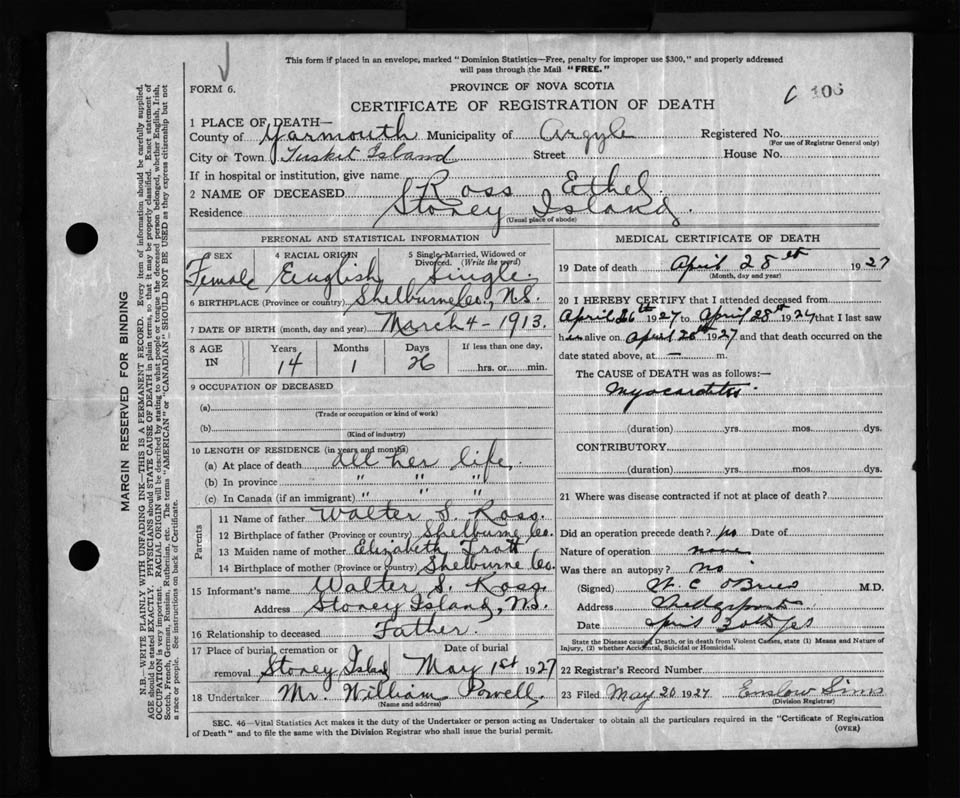 This form if placed in an envelope, marked "Dominion Statistics—Free, penalty for improper use $300," and properly addressed
will pass through the Mail "FREE."
FORM 6.
PROVINCE OF NOVA SCOTIA
C 106
CERTIFICATE OF REGISTRATION OF DEATH
1 PLACE OF DEATH—
County of Yarmouth Municipality of Argyle Registered No.
(For use of Registrar General only)
City or Town Tusket Island Street House No.
If in hospital or institution, give name
2 NAME OF DECEASED Ross Ethel
Residence Stoney Island.
(Usual place of abode)
PERSONAL AND STATISTICAL INFORMATION
3 SEX 4 RACIAL ORIGIN 5 Single, Married, Widowed or
Divorced. (Write the word)
Female English Single.
6 BIRTHPLACE (Province or country) Shelburne Co., N.S.
7 DATE OF BIRTH (month, day and year) March 4 - 1913.
8 AGE IN Years Months Days If less than one day,
14 1 26 hrs. or min.
9 OCCUPATION OF DECEASED
(a)
(Trade or occupation or kind of work)
(b)
(Kind of industry)
10 LENGTH OF RESIDENCE (in years and months)
(a) At place of death all her life
(b) In province " " "
(c) In Canada (if an immigrant) " " "
Parents
11 Name of father Walter S. Ross.
12 Birthplace of father (Province or country) Shelburne Co.
13 Maiden name of mother Elizabeth
14 Birthplace of mother (Province or country) Shelburne Co.
15 Informant's name Walter S. Ross.
Address Stoney Island, N.S.
16 Relationship to deceased Father.
17 Place of burial, cremation or Date of burial
removal Stoney Island May 1st 1927
18 Undertaker Mr. William Powell.
(Name and address)
MEDICAL CERTIFICATE OF DEATH
19 Date of death April 28th 1927
(Month, day and year)
20 I HEREBY CERTIFY that I attended deceased from
April 26th 1927 to April 28th 1927 that I last saw
her alive on April 28th 1927 and that death occurred on the
date stated above, at — m.
The CAUSE of DEATH was as follows:—
Myocarditis.
(duration) yrs. mos. dys.
CONTRIBUTORY
(duration) yrs. mos. dys.
21 Where was disease contracted if not at place of death?
Did an operation precede death? no Date of
Nature of operation none
Was there an autopsy? No
(Signed) W. C. O'Brien M.D.
Address Wedgeport
Date April 30th
State the Disease causing Death, or in death from Violent Causes, state (1) Means and Nature of
Injury, (2) whether Accidental, Suicidal or Homicidal.
22 Registrar's Record Number
23 Filed May 20 1927 Enslow Sims
(Division Registrar)
SEC. 46—Vital Statistics Act makes it the duty of the Undertaker or person acting as Undertaker to obtain all the particulars required in the "Certificate of Registration
of Death" and to file the same with the Division Registrar who shall issue the burial permit.
(OVER)
MARGIN RESERVED FOR BINDING
N.B.—WRITE PLAINLY WITH UNFADING INK—THIS IS A PERMANENT RECORD. Every item of information should be carefully supplied.
AGE should be stated EXACTLY. PHYSICIANS should STATE CAUSE OF DEATH in plain terms, so that it may be properly classified. Exact statement of
OCCUPATION is very important. RACIAL ORIGIN will be described by stating to what people or tongue the deceased person belonged, whether English, Irish,
Scotch, French, German, Russian, Ruthenian, etc. The terms "AMERICAN" or "CANADIAN" SHOULD NOT BE USED as they express citizenship but not
a race or people. See instructions on back of Certificate.